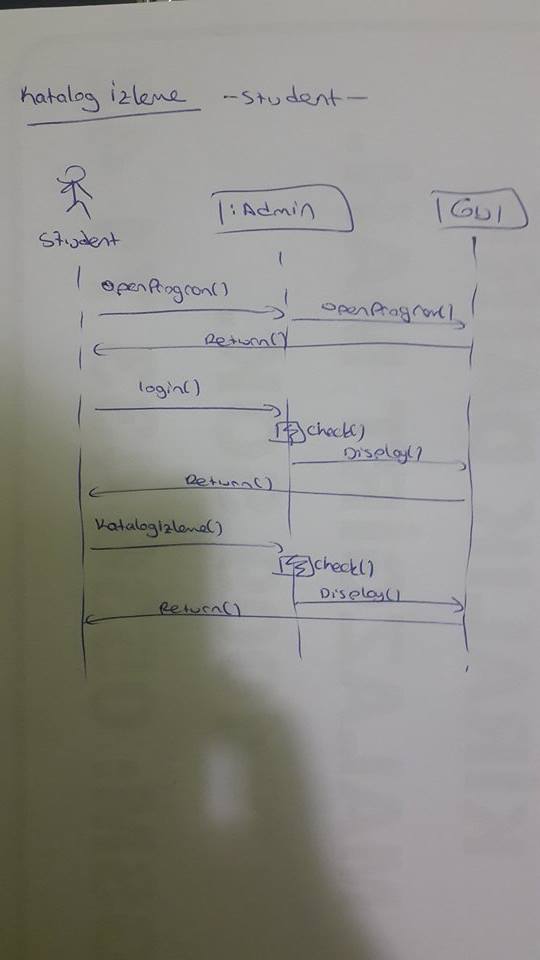 Katalog izleme -Student-
Student
:Admin
GUI
OpenProgram()
OpenProgram()
Return()
login()
check()
Display()
Return()
Katalogizleme()
check()
Display()
Return()